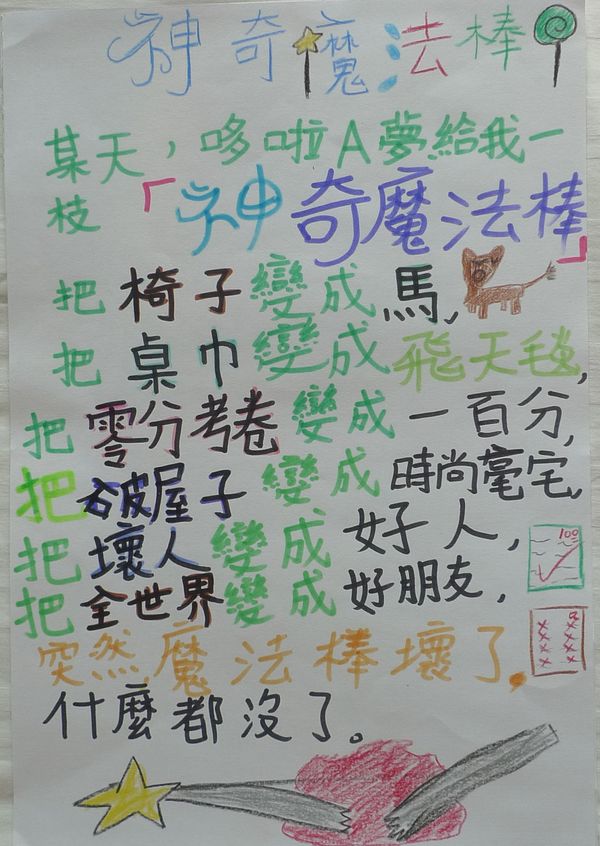 神奇魔法棒
某天，哆啦A夢給我一
枝「神奇魔法棒」
把椅子變成馬，
把桌巾變成飛天毯，
把零分考卷變成一百分，
把破屋子變成時尚毫宅，
把壞人變成好人，
100
把全世界變成好朋友，
突然魔法棒壞了，
什麼都沒了。